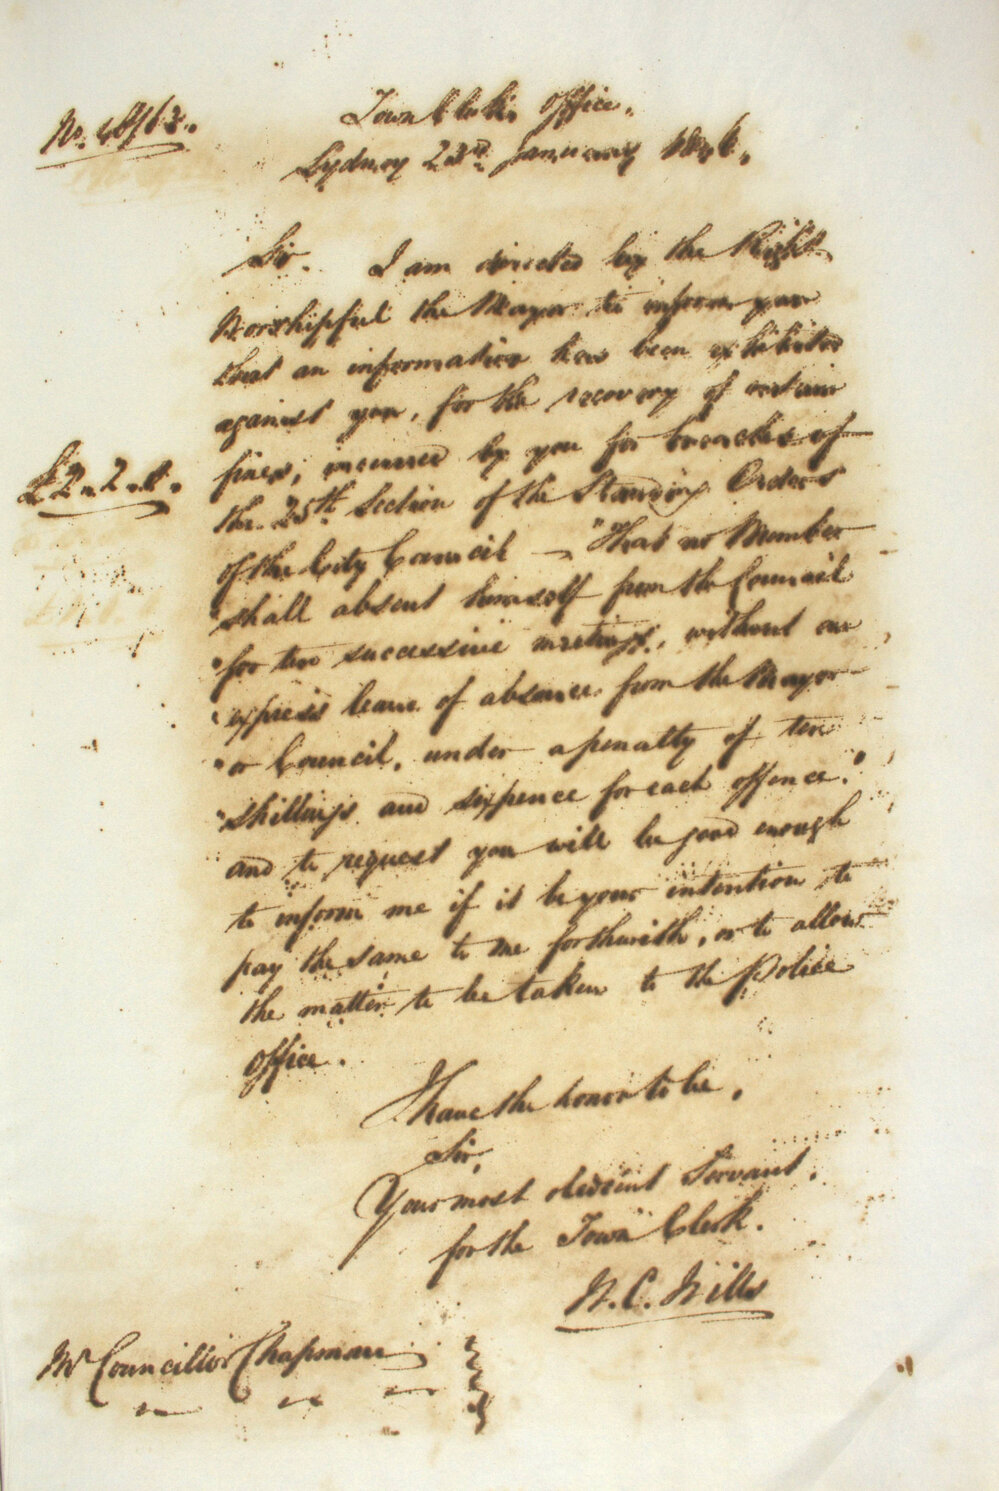 Town Clerk's Office.
Sydney 23rd January
Sir. I am directed by the Right
Worshipful the Mayor to inform you
that an information has been exhibited
against you, for the recovery of certain
fines, incurred by you for breaches of
£2.2.0.
the 25th Section of the Standing Orders
of the City Council — "That no Member
"shall absent himself from the Council
"for ten successive meetings, without an
"express leave of absence from the Mayor
"or Council, under a penalty of ten
"shillings and sixpence for each offence."
and to request you will be good enough
to inform me if it be your intention to
pay the same to me forthwith, or to allow
the matter to be taken to the Police
Office.
I have the honor to be,
Sir,
Your most obedient Servant.
for the Town Clerk.
W. C. Wills
Mr Councillor Chapman